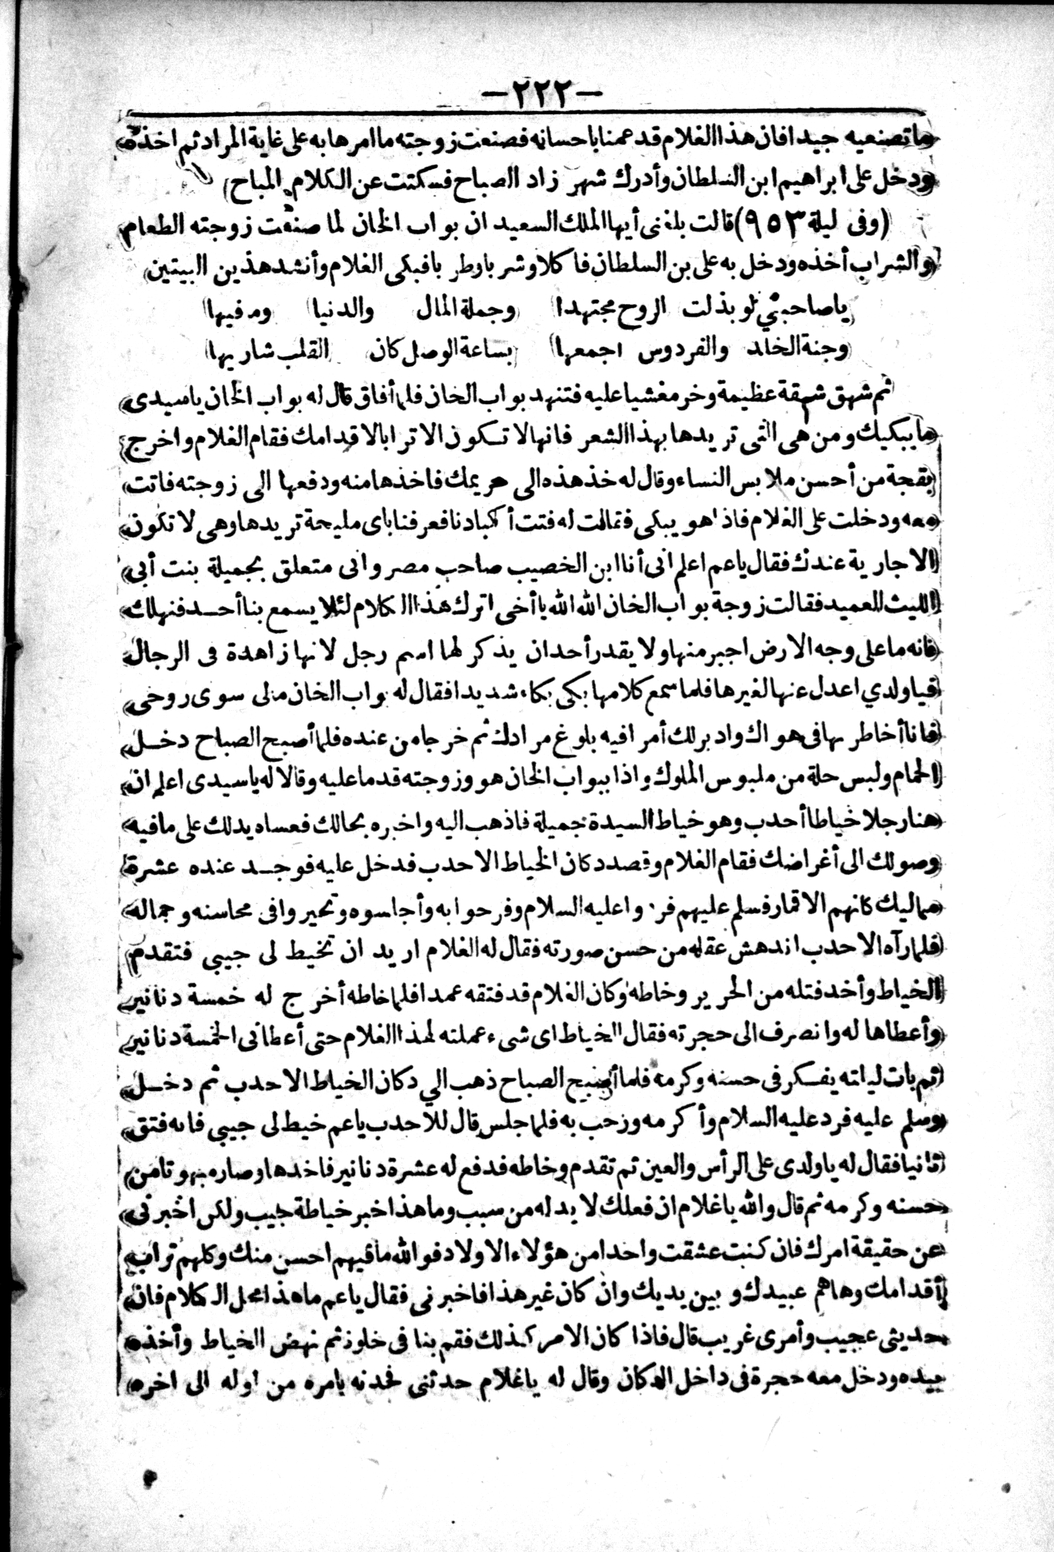 -٢٢٢-
ما تصنعيه جيدا فان هذا الغلام قد عمنا باحسانه فصنعت زوجته ما امرها به على غاية المراد ثم اخذه
ودخل على ابراهيم ابن السلطان وأدرك شهر زاد الصباح فسكتت عن الكلام المباح
(وفى ليلة ٩٥٣) قالت بلغنى أيها الملك السعيد ان بواب الخان لما صنعت زوجته الطعام
والشراب أخذه ودخل به على بن السلطان فاكلا وشربا وطربا فبكى الغلام وأنشد هذين البيتين
ياصاحبي لو بذلت الروح مجتهدا وجملة المال والدنيا وما فيها
وجنة الخلد والفردوس اجمعها بساعة الوصل كان القلب شاريها
ثم شهق شهقة عظيمة وخر مغشيا عليه فتنهد بواب الخان فلما أفاق قال له بواب الخان ياسيدى
ما يبكيك ومن هى التى تريدها بهذا الشعر فانها لا تكون الا ترابا لاقدامك فقام الغلام واخرج
بقجة من أحسن ملابس النساء وقال له خذ هذه الى حريمك فاخذها منه ودفعها الى زوجته فاتت
معه ودخلت على الغلام فاذا هو يبكى فقالت له فتت أكبادنا فعرفنا باى مليحة تريدها وهى لا تكون
الا جارية عندك فقال ياعم اعلم انى أنا ابن الخصيب صاحب مصر وانى متعلق بجميلة بنت أبي
الليث العميد فقالت زوجة بواب الخان الله الله يا أخى اترك هذا الكلام لئلا يسمع بنا أحد فنهلك
فانه ما على وجه الارض اجبر منها ولا يقدر أحد ان يذكر لها اسم رجل لانها زاهدة فى الرجال
فيا ولدي اعدل عنها لغيرها فلما سمع كلامها بكى بكاء شديدا فقال له بواب الخان مالى سوى روحى
فانا أخاطر بها فى هواك وادبر لك أمرا فيه بلوغ مرادك ثم خرجا من عنده فلما أصبح الصباح دخل
الحمام ولبس حلة من ملبوس الملوك واذا ببواب الخان هو وزوجته قدما عليه وقالا له ياسيدى اعلم ان
هنا رجلا خياطا أحدب وهو خياط السيدة جميلة فاذهب اليه واخبره بحالك فعساه يدلك على ما فيه
وصولك الى أغراضك فقام الغلام وقصد دكان الخياط الاحدب فدخل عليه فوجد عنده عشرة
مماليك كانهم الاقمار فسلم عليهم فردوا عليه السلام وفرحوا به وأجلسوه وتحيروا فى محاسنه وجماله
فلما رآه الاحدب اندهش عقله من حسن صورته فقال له الغلام اريد ان تخيط لى جيبى فتقدم
الخياط وأخذ فتلة من الحرير وخاطه وكان الغلام قد فتقه عمدا فلما خاطه أخرج له خمسة دنانير
وأعطاها له وانصرف الى حجرته فقال الخياط اى شىء عملته لهذا الغلام حتى أعطانى الخمسة دنانير
ثم بات ليلته يفكر فى حسنه وكرمه فلما أصبح الصباح ذهب الي دكان الخياط الاحدب ثم دخل
وسلم عليه فرد عليه السلام وأكرمه ورحب به فلما جلس قال للاحدب ياعم خيط لى جيبى فانه فتق
ثانيا فقال له ياولدى على الرأس والعين ثم تقدم وخاطه فدفع له عشرة دنانير فاخذها وصار مبهوتا من
حسنه وكرمه ثم قال والله ياغلام ان فعلك لا بد له من سبب وما هذا خبر خياطة جيب ولكن اخبرنى
عن حقيقة امرك فان كنت عشقت واحدا من هؤلاء الاولاد فوالله ما فيهم احسن منك وكلهم تراب
أقدامك وها هم عبيدك وبين يديك وان كان غير هذا فاخبرنى فقال ياعم ما هذا محل الكلام فان
حديثى عجيب وأمرى غريب قال فاذا كان الامر كذلك فقم بنا فى خلوة ثم نهض الخياط وأخذه
بيده ودخل معه حجرة فى داخل الدكان وقال له ياغلام حدثنى فحدثه بامره من اوله الى اخره